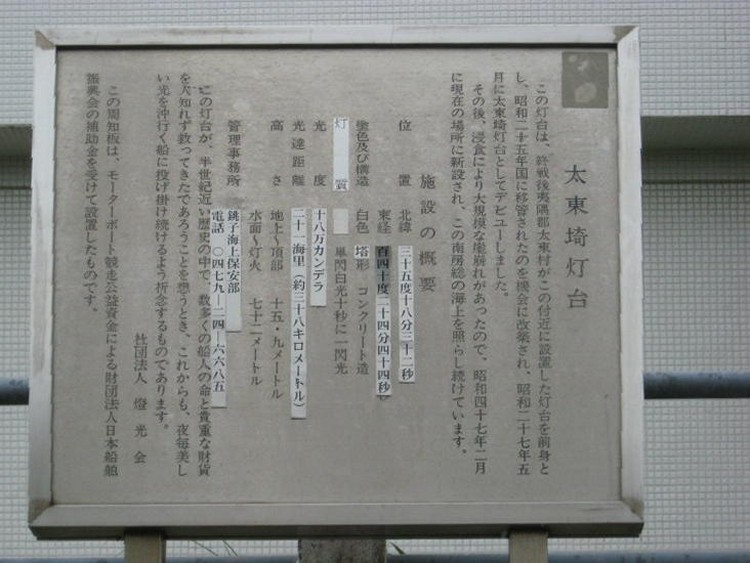 太東埼灯台
この灯台は、終戦後夷隅郡太東村がこの付近に設置した灯台を前身と
し、昭和二十五年国に移管されたのを機会に改築され、昭和二十七年五
月に太東埼灯台としてデビューしました。
その後、浸食により大規模な崖崩れがあったので、昭和四十七年二月
に現在の場所に新設され、この南房総の海上を照らし続けています。
施設の概要
位置 北緯 三十五度十八分三十二秒
東経 百四十度二十四分四十四秒
塗色及び構造 白色 塔形 コンクリート造
灯質 単閃白光十秒に一閃光
光度 十八万カンデラ
光達距離 二十一海里(約三十八キロメートル)
高さ 地上~頂部 十五・九メートル
水面~灯火 七十二メートル
管理事務所 銚子海上保安部
電話 〇四七九―二四―六六八五
この灯台が、半世紀近い歴史の中で、数多くの船人の命と貴重な財貨
を人知れず救ってきたであろうことを想うとき、これからも、夜毎美し
い光を沖行く船に投げ掛け続けるよう祈念するものであります。
社団法人 燈光会
この周知板は、モーターボート競走公益資金による財団法人日本船舶
振興会の補助金を受けて設置したものです。